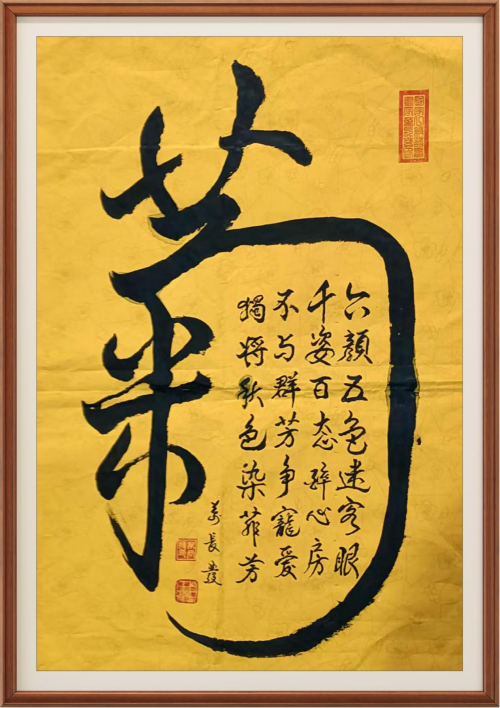 菊
六颜五色迷客眼
千姿百态醉心房
不与群芳争寵爱
獨将秋色染菲芳
万長發